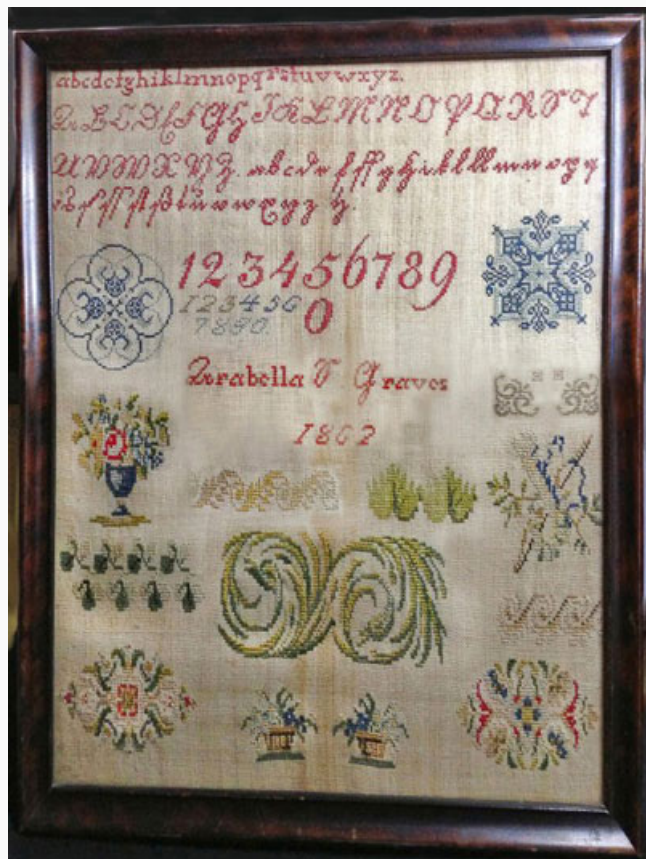 abcdefghiklmnopqrstuvwxyz.
A B C D E F G H I K L M N O P Q R S T
U V W X Y Z. a b c d e f ff g h i k l ll m n o p q
1 2 3 4 5 6 7 8 9
1 2 3 4 5 6 0
7 8 9 0.
Arabella S Graves
1862